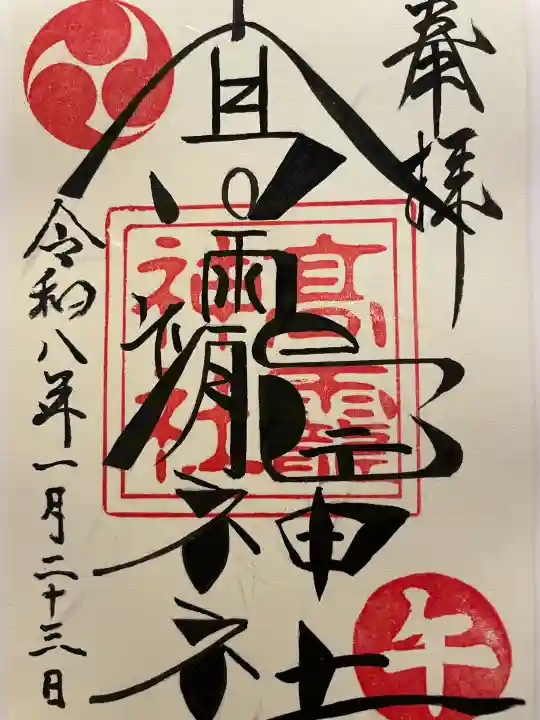 奉拝
高龗神社
高龗神社
令和八年一月二十三日
午